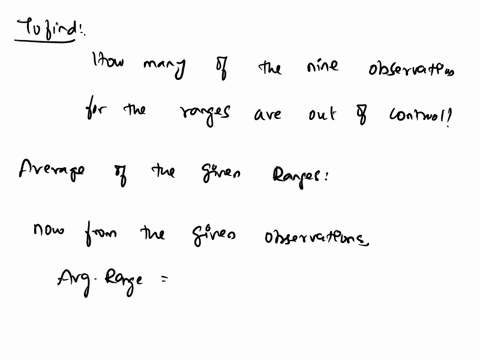 To find:
How many of the nine observations
for the ranges are out of control?
Average of the given Ranges:
now from the given observations
Avg. Range =